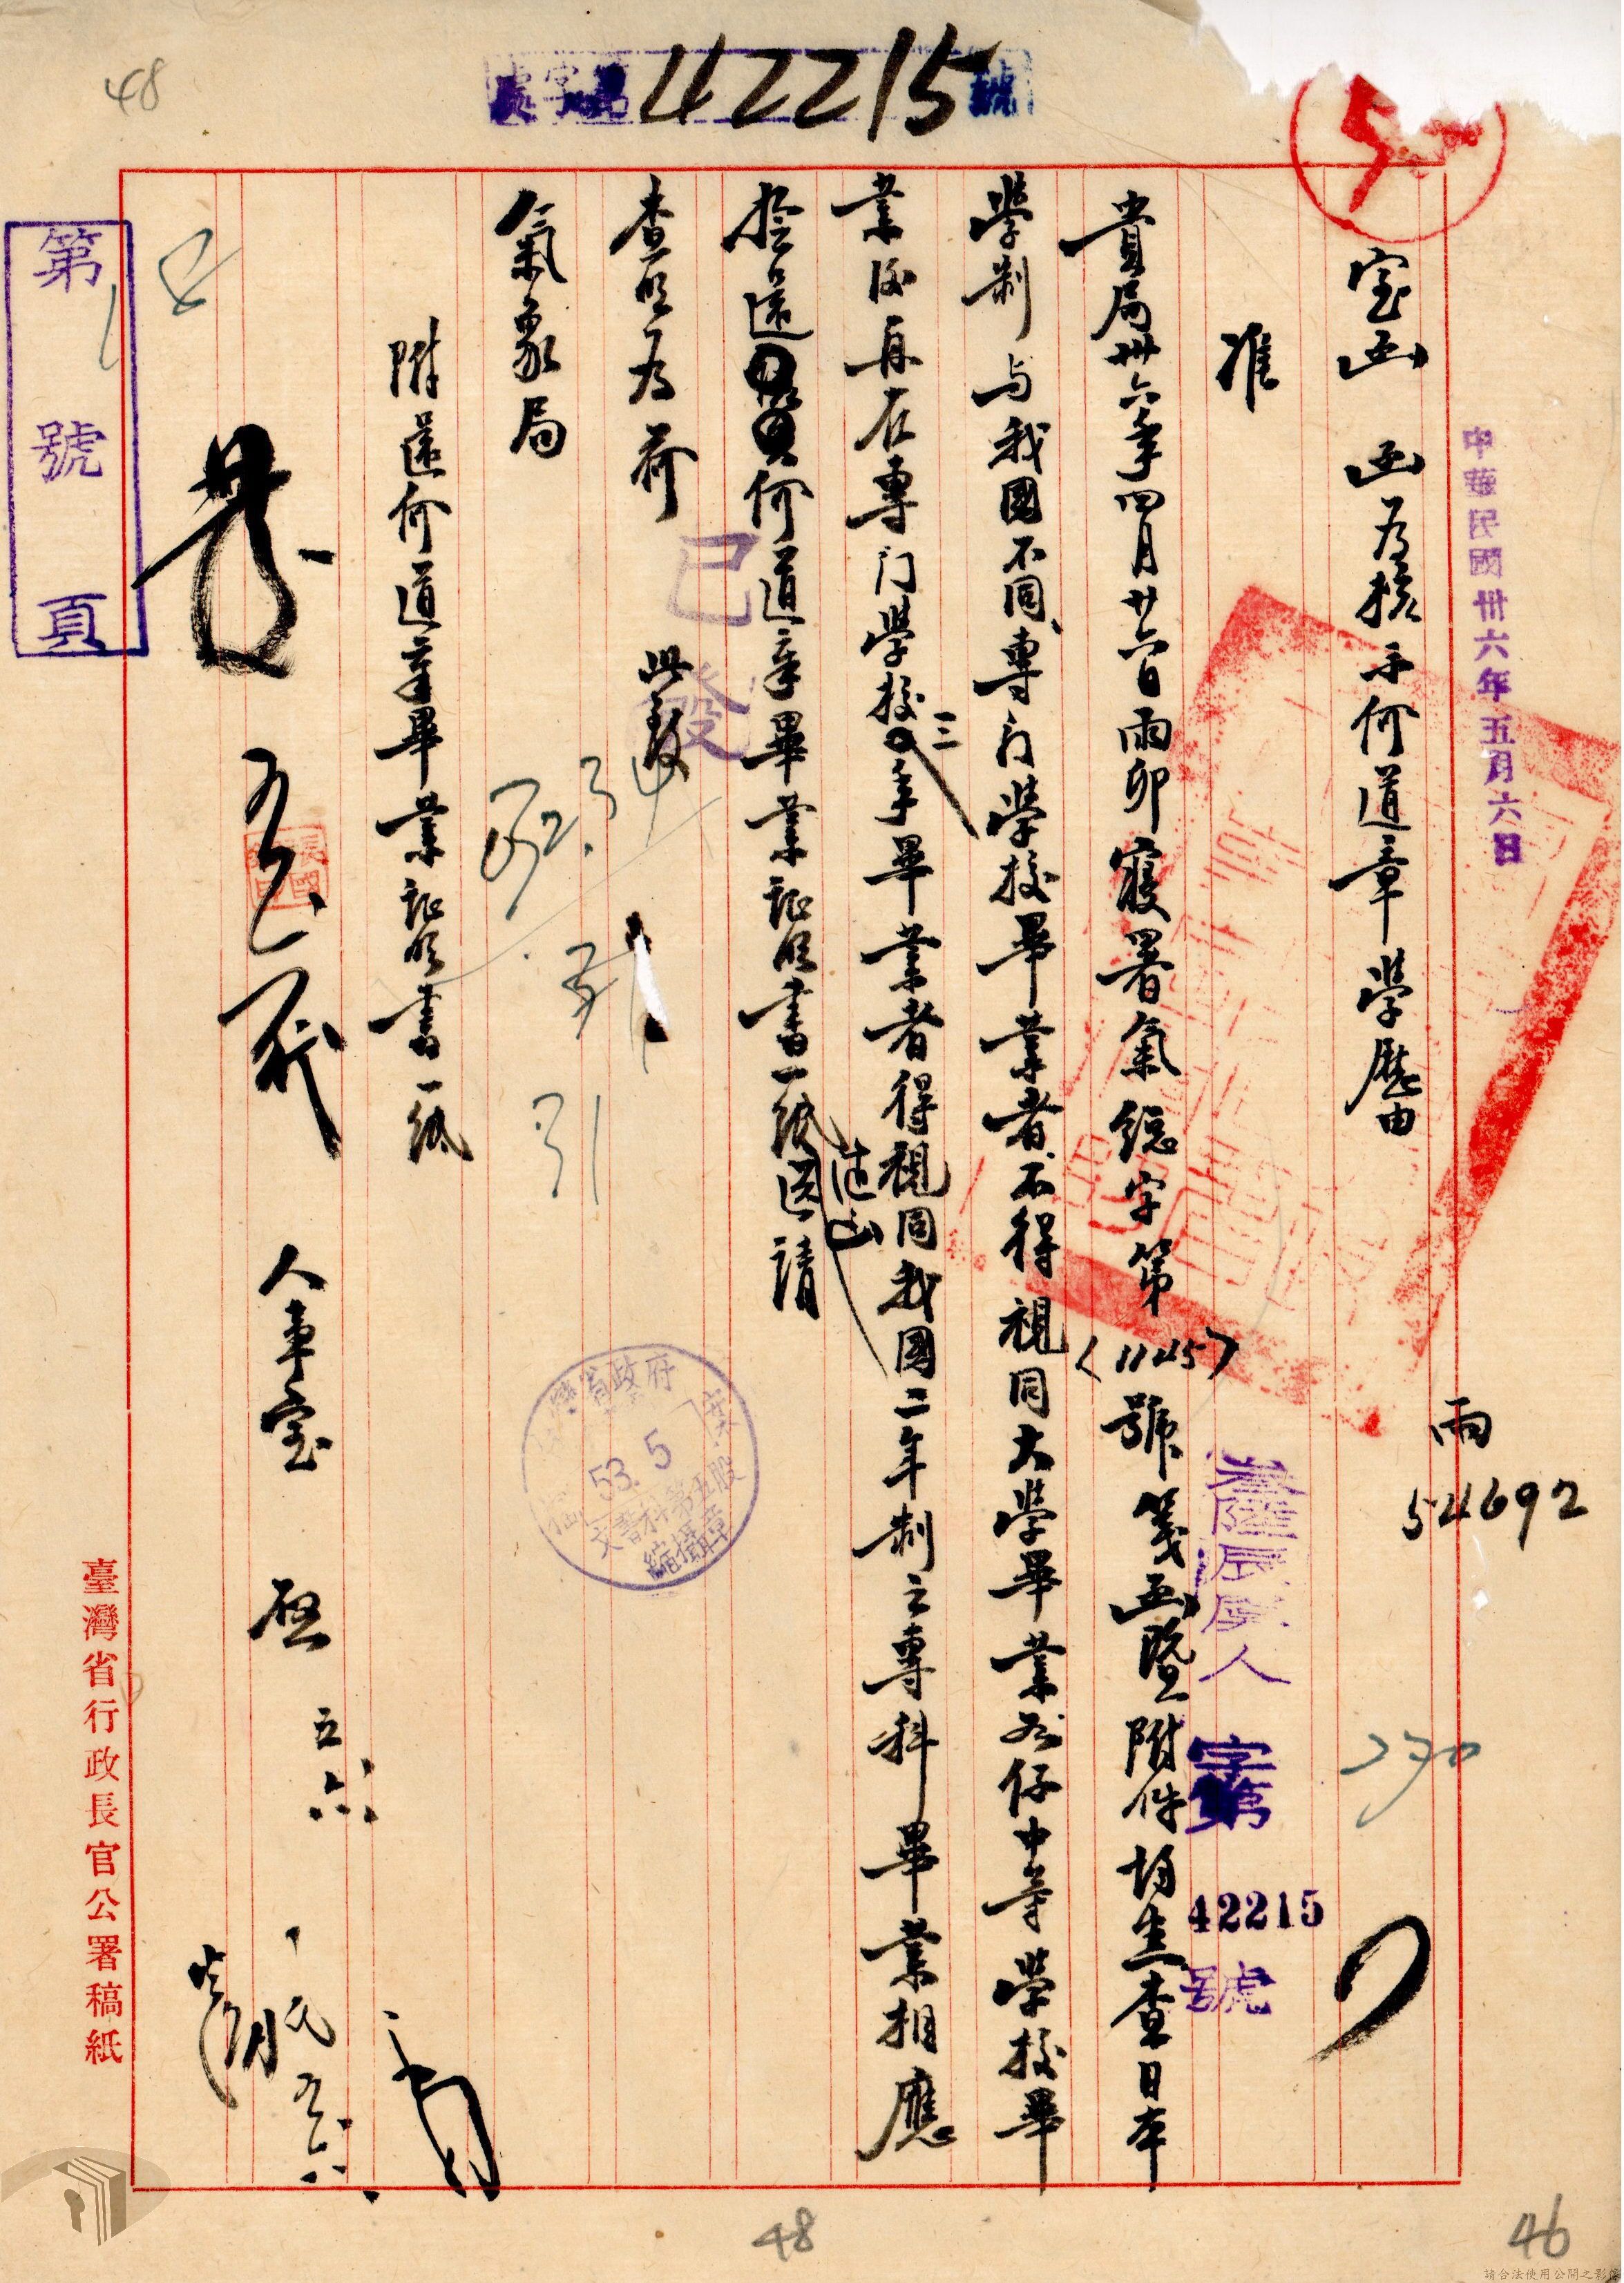 48
處字第42215號
5
中華民國卅六年五月六日
室函 函為核示何道章學歷由
雨
54692
准
貴局卅六年四月廿六日雨卯寢署氣總字第(1145)號箋函暨附件均悉查日本
學制与我國不同專门學校畢業者不得視同大學畢業於仔中等學校畢
業後再在專门學校三年畢業者得視同我國二年制之專科畢業相應
檢還何道章畢業証明書一紙函請
查照為荷 此致
氣象局
附還何道章畢業証明書一紙
人事室 啟 五六
字第42215號
已發
臺灣省政府
53.5
文書科第五股
縮攝章
第 號 頁
臺灣省行政長官公署稿紙
48
46
請合法使用公開之影像